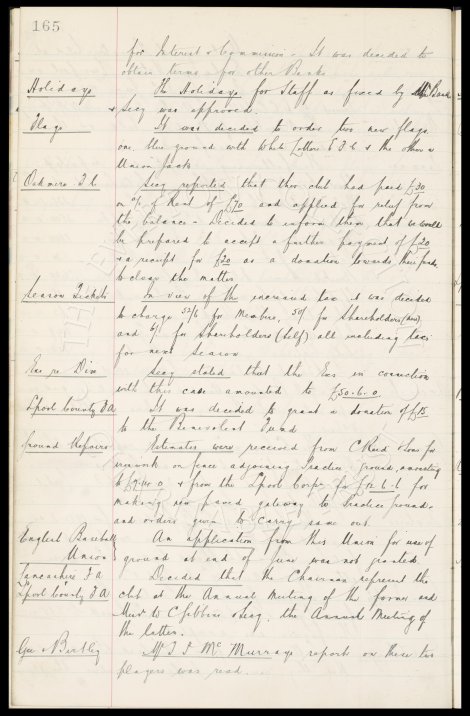 165
for Interest & Commission. It was decided to
obtain terms for other Banks
Holidays
The Holidays for Staff as fixed by Mr
& Secy was approved.
Flags
It was decided to order two new flags.
one blue ground with White Letters E F C & the other a
Union Jack
Oakmere F. C.
Secy reported that this club had paid £30
on a/c of Rent of £70 and applied for relief from
the balance - Decided to inform them, that we would
be prepared to accept a further payment of £20
& a receipt for £20 as a donation towards their funds
to close the matter
Season Tickets
In view of the increased tax it was decided
to charge 52/6 for Members, 50/ for Shareholders
and 5/ for Shareholders (Self) all including tax
for next Season
Exs re Dix
Secy stated that the Exs in connection
with this case amounted to £50.6.0
Lpool County F A
It was decided to grant a donation of £15
to the Benevolent Fund
Ground Repairs
Estimates were received from C Reid & Sons for
on fence adjoining Practice ground, amounting
to & from the Lpool Corpn for £12.6.6 for
making new paved gateway to Practice ground
and orders given to carry same out
English Baseball
Union
An application from this Union for use of
ground at end of June was not granted
Lancashire F A
Lpool County F A
Decided that the Chairman represent the
club at the Annual Meeting of the former and
Messrs W C Gibbins & Secy. the Annual Meeting of
the latter.
Gee & Birtley
Mr T. F. McMurrays report on these two
players was read.